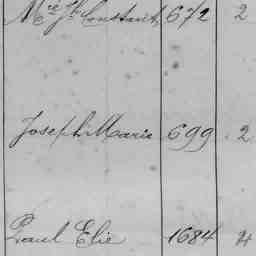 Mie Jh Constant, 672 2
Joseph Marie 699 2
Paul Elie 1684 4